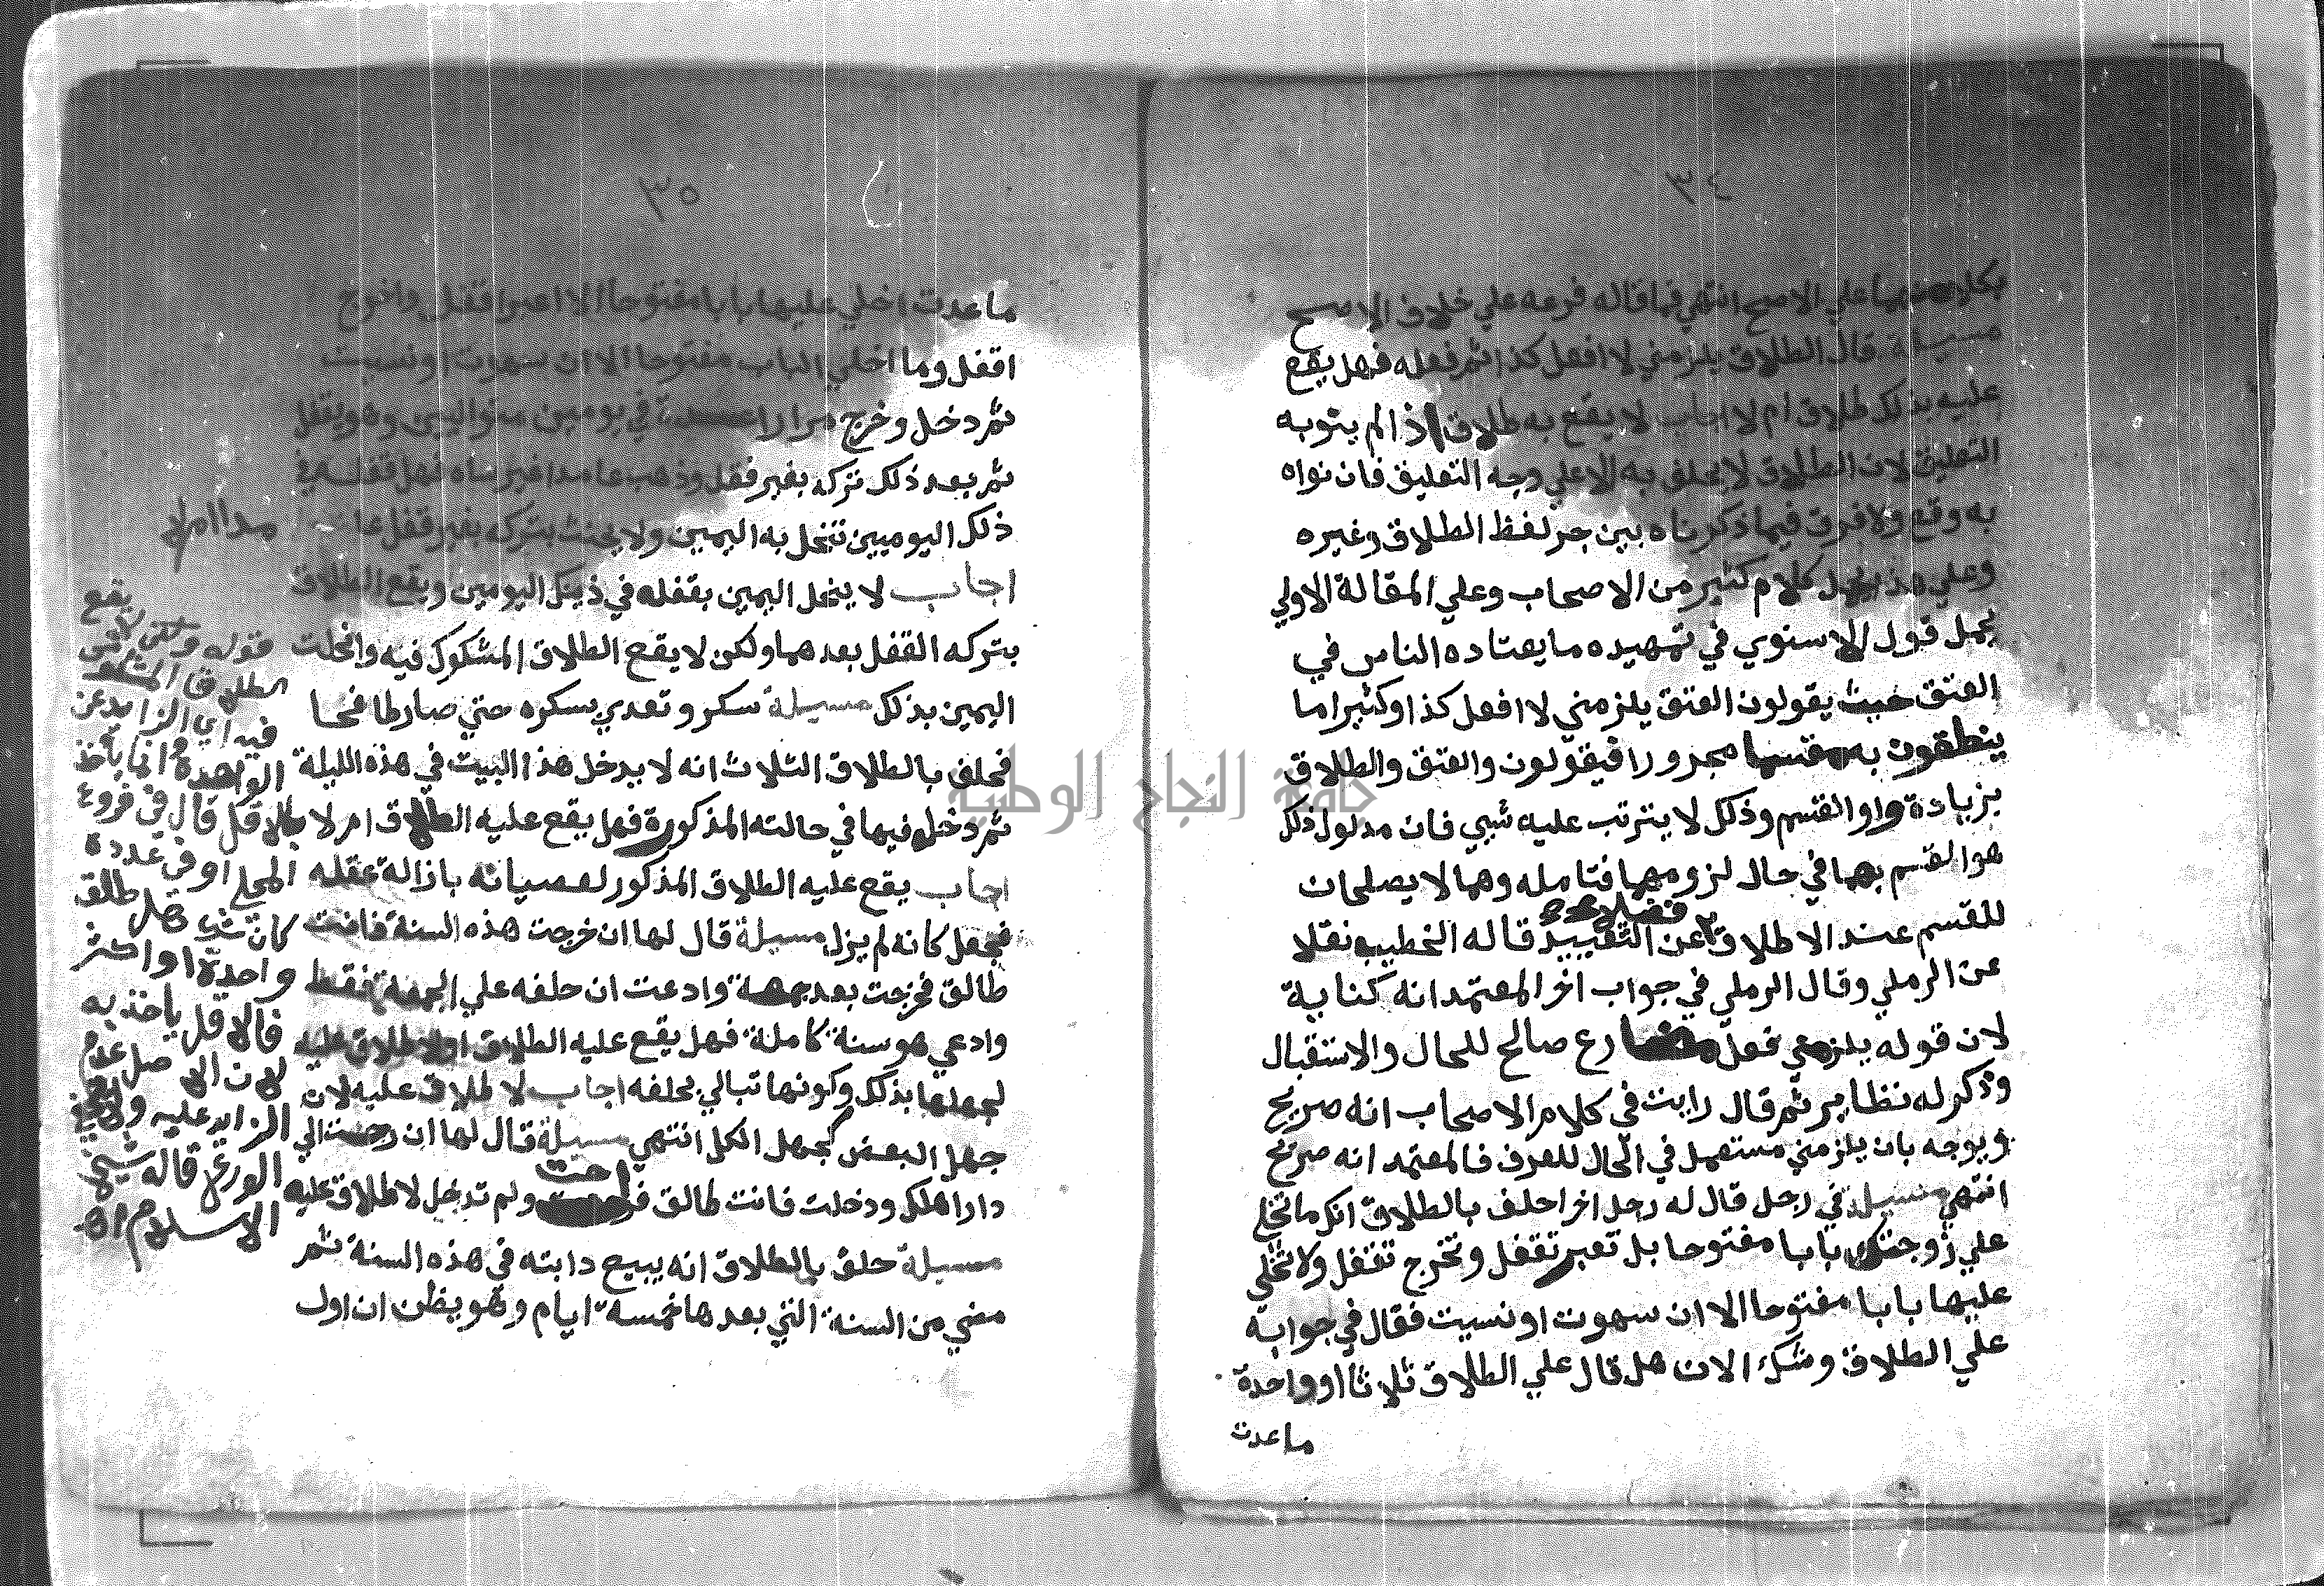 ٣٤
بكل منهما علي الاصح انتهي فما قاله فرعه علي خلاف الاصح
مسيلة قال الطلاق يلزمني لا افعل كذا ثم فعله فهل يقع
عليه بذلك طلاق ام لا اجاب لا يقع به طلاق اذا لم ينوبه
التعليق لان الطلاق لا يحلف به الا علي وجه التعليق فان نواه
به وقع ولا فرق فيما ذكرناه بين جر لفظ الطلاق وغيره
وعلي هذا يحمل كلام كثير من الاصحاب وعلي المقالة الاولي
يحمل قول الاسنوي في تمهيده ما يعتاده الناس في
العتق حيث يقولون العتق يلزمني لا افعل كذا وكثيرا ما
ينطقون به مقسما مجرورا فيقولون والعتق والطلاق
بزيادة واو القسم وذلك لا يترتب عليه شيي فان مدلول ذلك
هو القسم بهما في حال لزومهما فتامله وهما لا يصلحان
للقسم عند الاطلاق فضلا عن التقييد قاله الخطيب نقلا
عن الرملي وقال الرملي في جواب اخر المعتمد انه كناية
لان قوله يلزمني فعل مضارع صالح للحال والاستقبال
وذكر له نظاير ثم قال رايت في كلام الاصحاب انه صريح
ويوجه بان يلزمني مستعمل في الحال للعرف فالمعتمد انه صريح
انتهي مسيلة في رجل قال له رجل اخر احلف بالطلاق انك ما تخلي
علي زوجتك بابا مفتوحا بل تعبر تقفل وتخرج تقفل ولا تخلي
عليها بابا مفتوحا الا ان سهوت او نسيت فقال في جوابه
علي الطلاق وشك الان هل قال علي الطلاق ثلاثا او واحدة
ما عدت
٣٥
ما عدت اخلي عليها بابا مفتوحا الا اعبر اقفل واخرج
اقفل وما اخلي الباب مفتوحا الا ان سهوت او نسيت
ثم دخل وخرج مرارا في يومين متواليين وهو يقفل
ثم بعد ذلك تركه بغير قفل وذهب عامدا غير ناه فهل قفله في
ذلك اليوميين تنحل به اليمين ولا يحنث بتركه بغير قفل عامدا ام لا
اجاب لا ينحل اليمين بقفله في ذينك اليومين ويقع الطلاق
بتركه القفل بعدهما ولكن لا يقع الطلاق المشكوك فيه وانحلت
اليمين بذلك مسيلة سكر وتعدي بسكره حتي صار طافحا
فحلف بالطلاق الثلاث انه لا يدخل هذا البيت في هذه الليلة
ثم دخل فيها في حالته المذكورة فهل يقع عليه الطلاق ام لا
اجاب يقع عليه الطلاق المذكور لعصيانه بازالة عقله
فجعل كانه لم يزل مسيلة قال لها ان خرجت هذه السنة فانت
طالق فخرجت بعد جمعة وادعت ان حلفه علي الجمعة فقط
وادعي هو سنة كاملة فهل يقع عليه الطلاق او لا طلاق عليه
لجهلها بذلك وكونها تبالي بحلفه اجاب لا طلاق عليه لان
جهل البعض كجهل الكل انتهي مسيلة قال لها ان رحت الي
دار اهلك ودخلت فانت طالق فراحت ولم تدخل لا طلاق عليه
مسيلة حلف بالطلاق انه يبيع دابته في هذه السنة ثم
مضي من السنة التي بعدها خمسة ايام وهو يظن ان اول
قوله ولكن لا يقع
الطلاق المشكوك
فيه اي الزايد عن
الواحدة وانما ياخذ
بالاقل قال في فروع
المحلي او في عدده
كان شك هل طلق
واحدة او اكثر
فالاقل ياخذ به
لان الاصل عدم
الزايد عليه ولا يخفي
الورع قاله شيخ
الاسلام اه
جامعة النجاح الوطنية